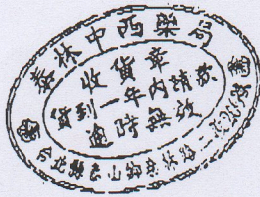 森林中西藥局
收貨章
貨到一年內請款
逾時無效
台北縣泰山鄉泰林路二段